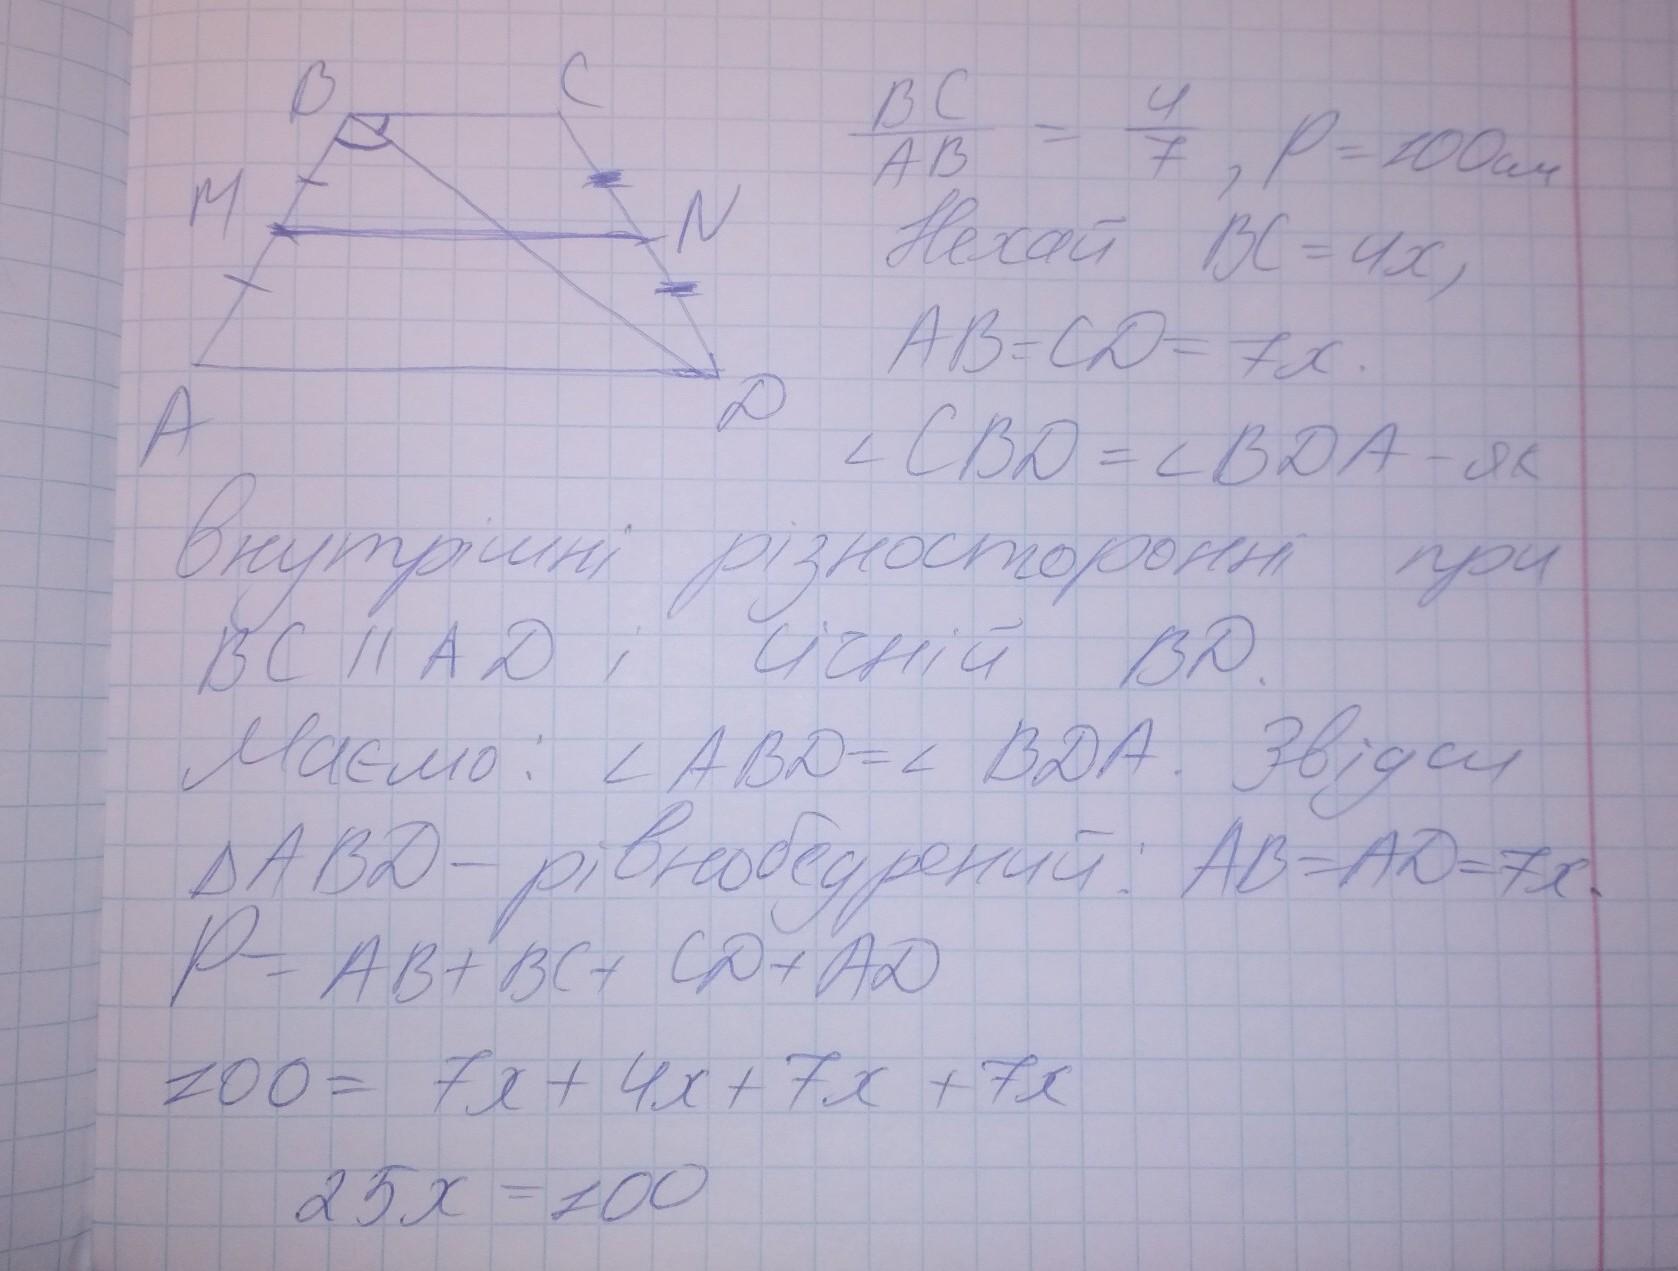 B C
M N
A D
BC/AB = 4/7, P = 100см
Нехай BC = 4x,
AB = CD = 7x.
∠CBD = ∠BDA - як
внутрішні різносторонні при
BC || AD і січній BD.
Маємо: ∠ABD = ∠BDA. Звідси
△ABD - рівнобедрений: AB = AD = 7x.
P = AB + BC + CD + AD
100 = 7x + 4x + 7x + 7x
25x = 100